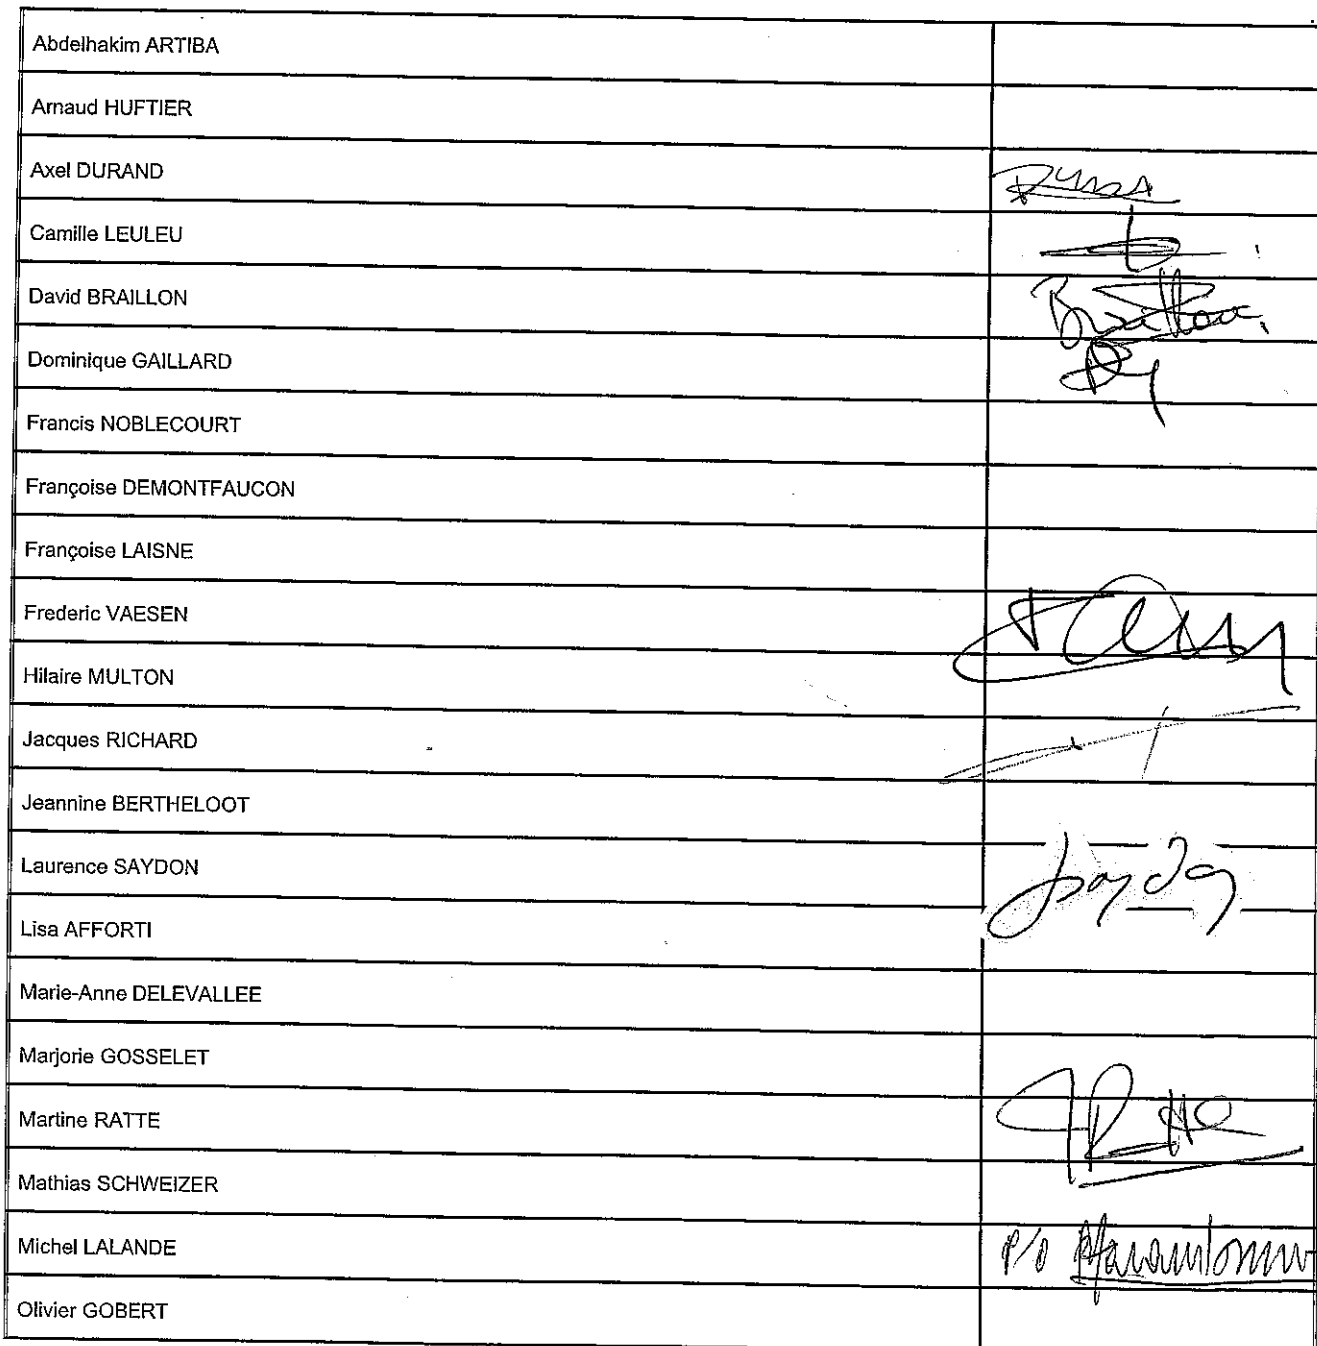 Abdelhakim ARTIBA
Arnaud HUFTIER
Axel DURAND
Camille LEULEU
David BRAILLON
Braillon
Dominique GAILLARD
Francis NOBLECOURT
Françoise DEMONTFAUCON
Françoise LAISNE
Frederic VAESEN
Hilaire MULTON
Jacques RICHARD
Jeannine BERTHELOOT
Laurence SAYDON
Lisa AFFORTI
Marie-Anne DELEVALLEE
Marjorie GOSSELET
Martine RATTE
Mathias SCHWEIZER
Michel LALANDE P/O
Olivier GOBERT